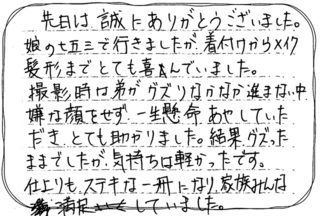 先日は、誠にありがとうございました。
娘の七五三で行きましたが、着付けからメイク
髪形までとても喜んでいました。
撮影時は弟がグズりなかなか進まない中
嫌な顔をせず、一生懸命あやしていた
だき とても助かりました。結果グズった
ままでしたが、気持ちは軽かったです。
仕上りも、ステキな一冊になり、家族みんな
満足していました。